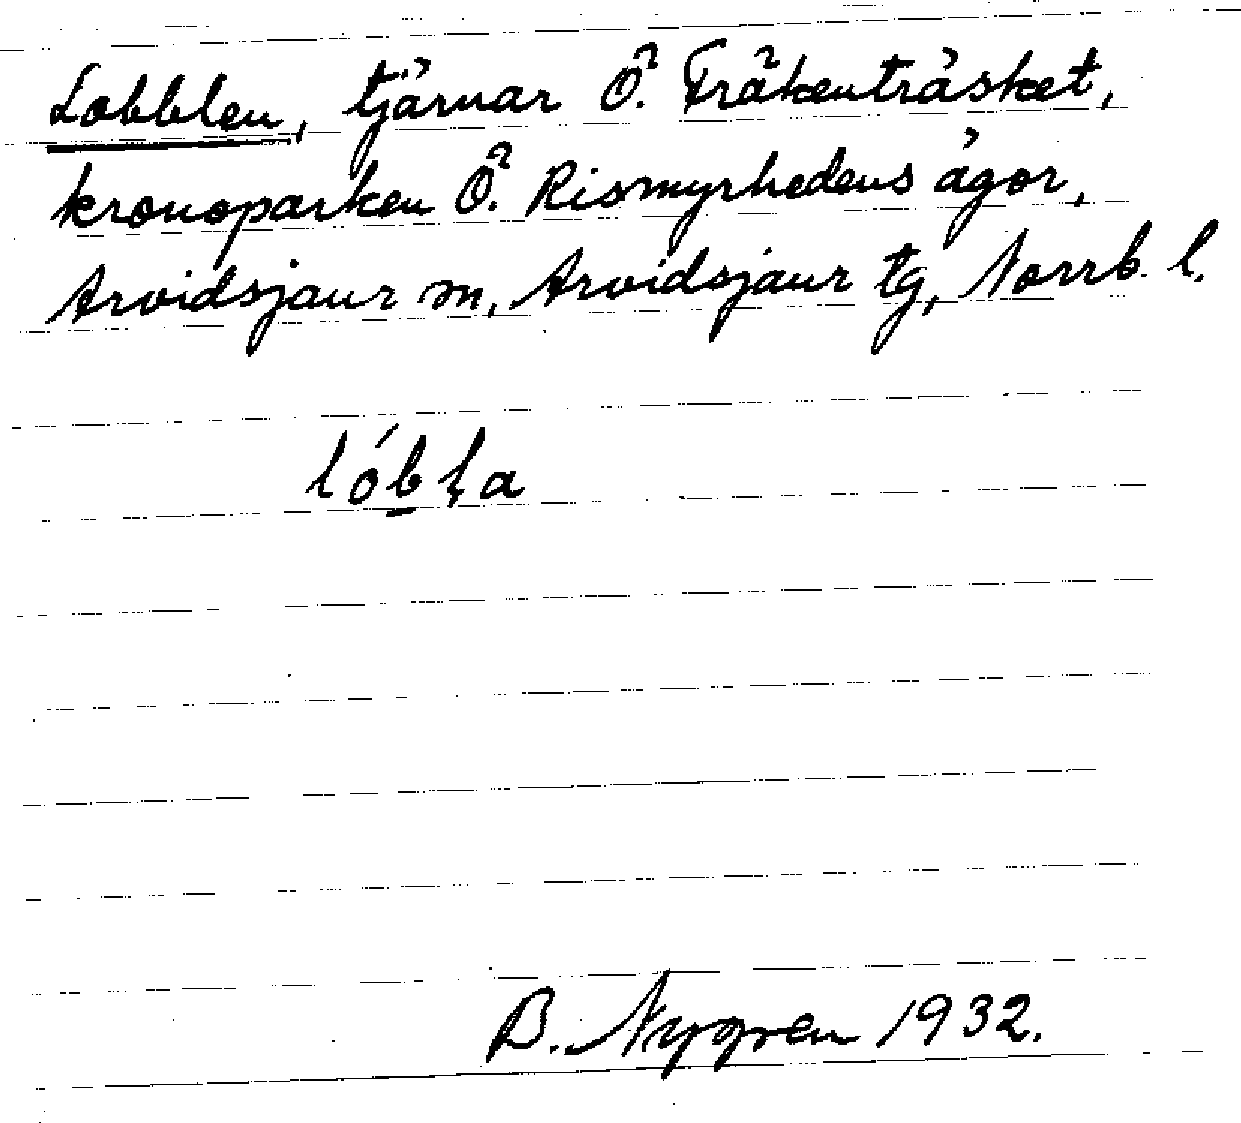 Lobblen, tjärnar Ö. Fräkenträsket,
kronoparken Ö. Rismyrhedens ägor,
Arvidsjaur sn, Arvidsjaur tg, Norrb. l.
lóbḷa
B. Nygren 1932.